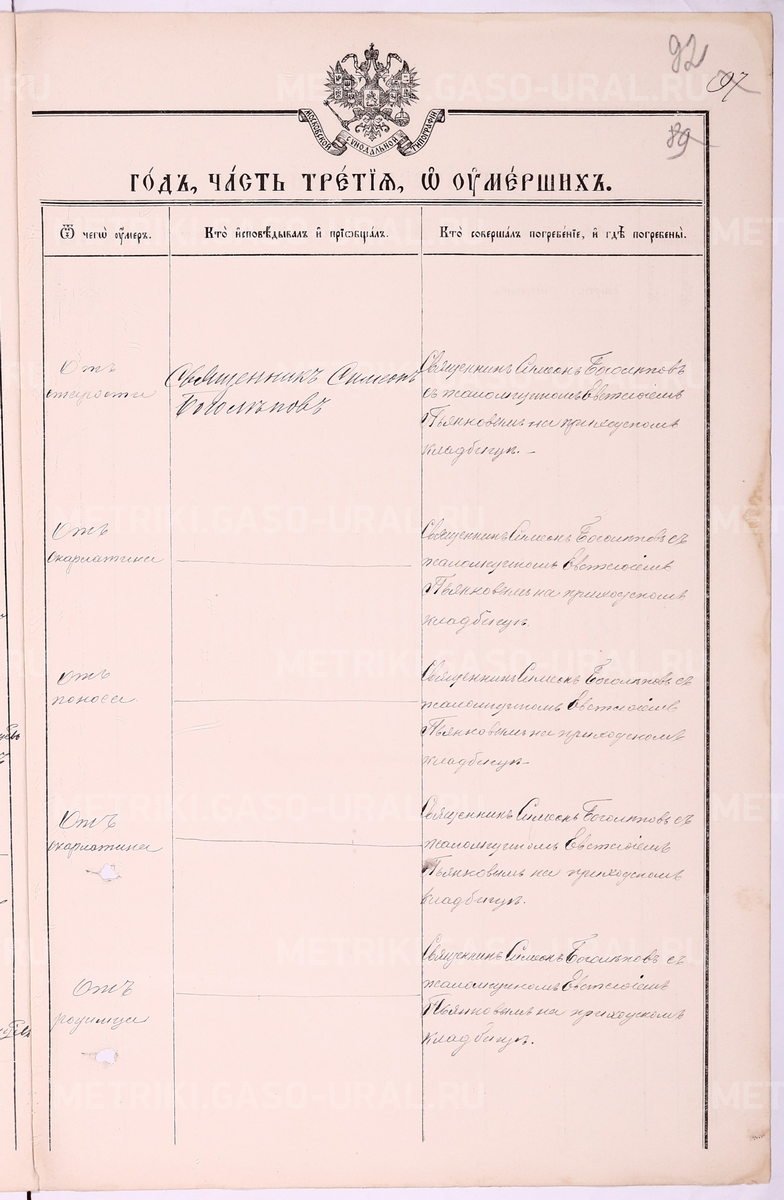 92
97
89
МОСКОВСКОЙ СѴНОДАЛЬНОЙ ТИПОГРАФІИ
ГО́ДЪ, ЧА́СТЬ ТРЕ́ТІѦ, Ѡ҆ ОУ҆МЕ́РШИХЪ.
Ѿ чегѡ̀ оу҆́меръ.
Кто̀ и҆сповѣ́дывалъ и҆ прїѡбща́лъ.
Кто̀ соверша́лъ погребе́нїе, и҆ гдѣ̀ погребены̀.
Отъ
старости
Священникъ Симеонъ
Боголѣповъ
Священникъ Симеонъ Боголѣповъ
съ псаломщикомъ Евстаѳіемъ
Пьянковымъ на приходскомъ
кладбищѣ.
Отъ
скарлатины
Священникъ Симеонъ Боголѣповъ съ
псаломщикомъ Евстаѳіемъ
Пьянковымъ на приходскомъ
кладбищѣ.
Отъ
поноса
Священникъ Симеонъ Боголѣповъ съ
псаломщикомъ Евстаѳіемъ
Пьянковымъ на приходскомъ
кладбищѣ
Отъ
скарлатины
Священникъ Симеонъ Боголѣповъ съ
псаломщикомъ Евстаѳіемъ
Пьянковымъ на приходскомъ
кладбищѣ.
Отъ
родимца
Священникъ Симеонъ Боголѣповъ съ
псаломщикомъ Евстаѳіемъ
Пьянковымъ на приходскомъ
кладбищѣ.
METRIKI.GASO-URAL.RU